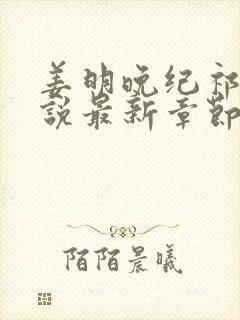 姜明晚纪祁
説最新章節
陌陌晨曦